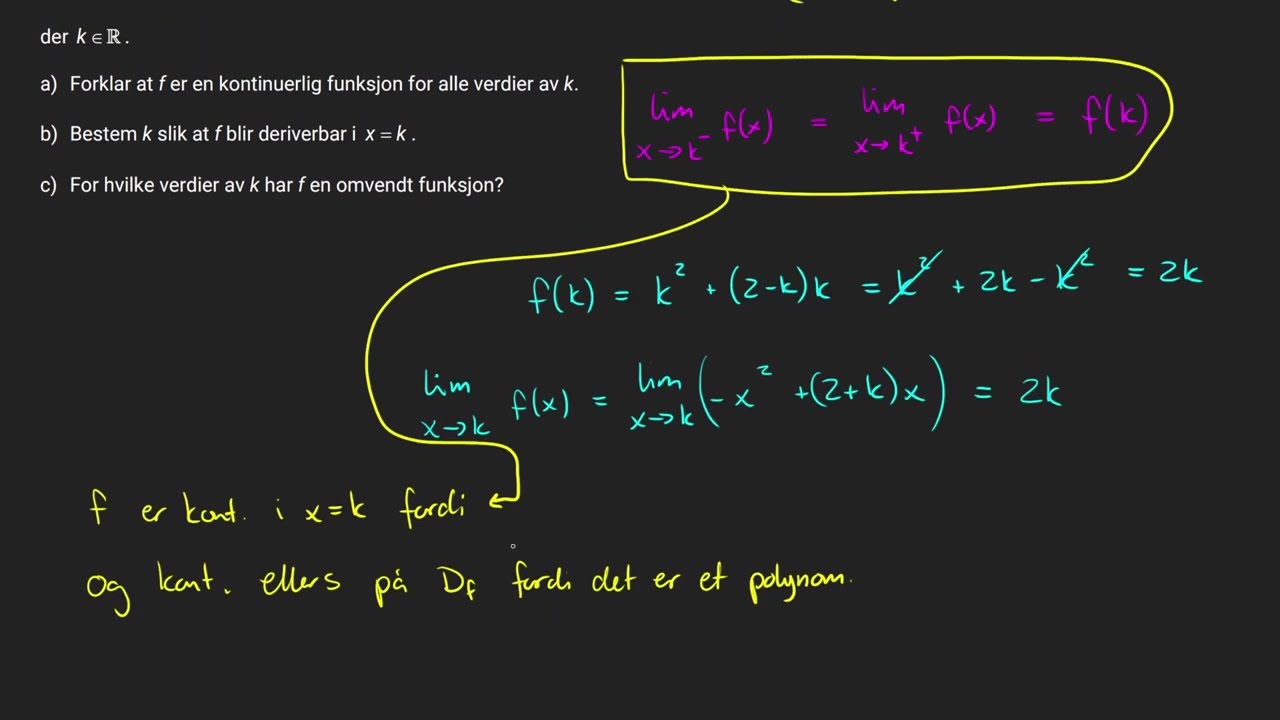 der k ∈ ℝ.
a) Forklar at f er en kontinuerlig funksjon for alle verdier av k.
b) Bestem k slik at f blir deriverbar i x = k.
c) For hvilke verdier av k har f en omvendt funksjon?
lim x→k⁻ f(x) = lim x→k⁺ f(x) = f(k)
f(k) = k² + (2-k)k = k² + 2k - k² = 2k
lim x→k f(x) = lim x→k (-x² + (2+k)x) = 2k
f er kont. i x=k fordi
Og kont. ellers på D_f fordi det er et polynom.